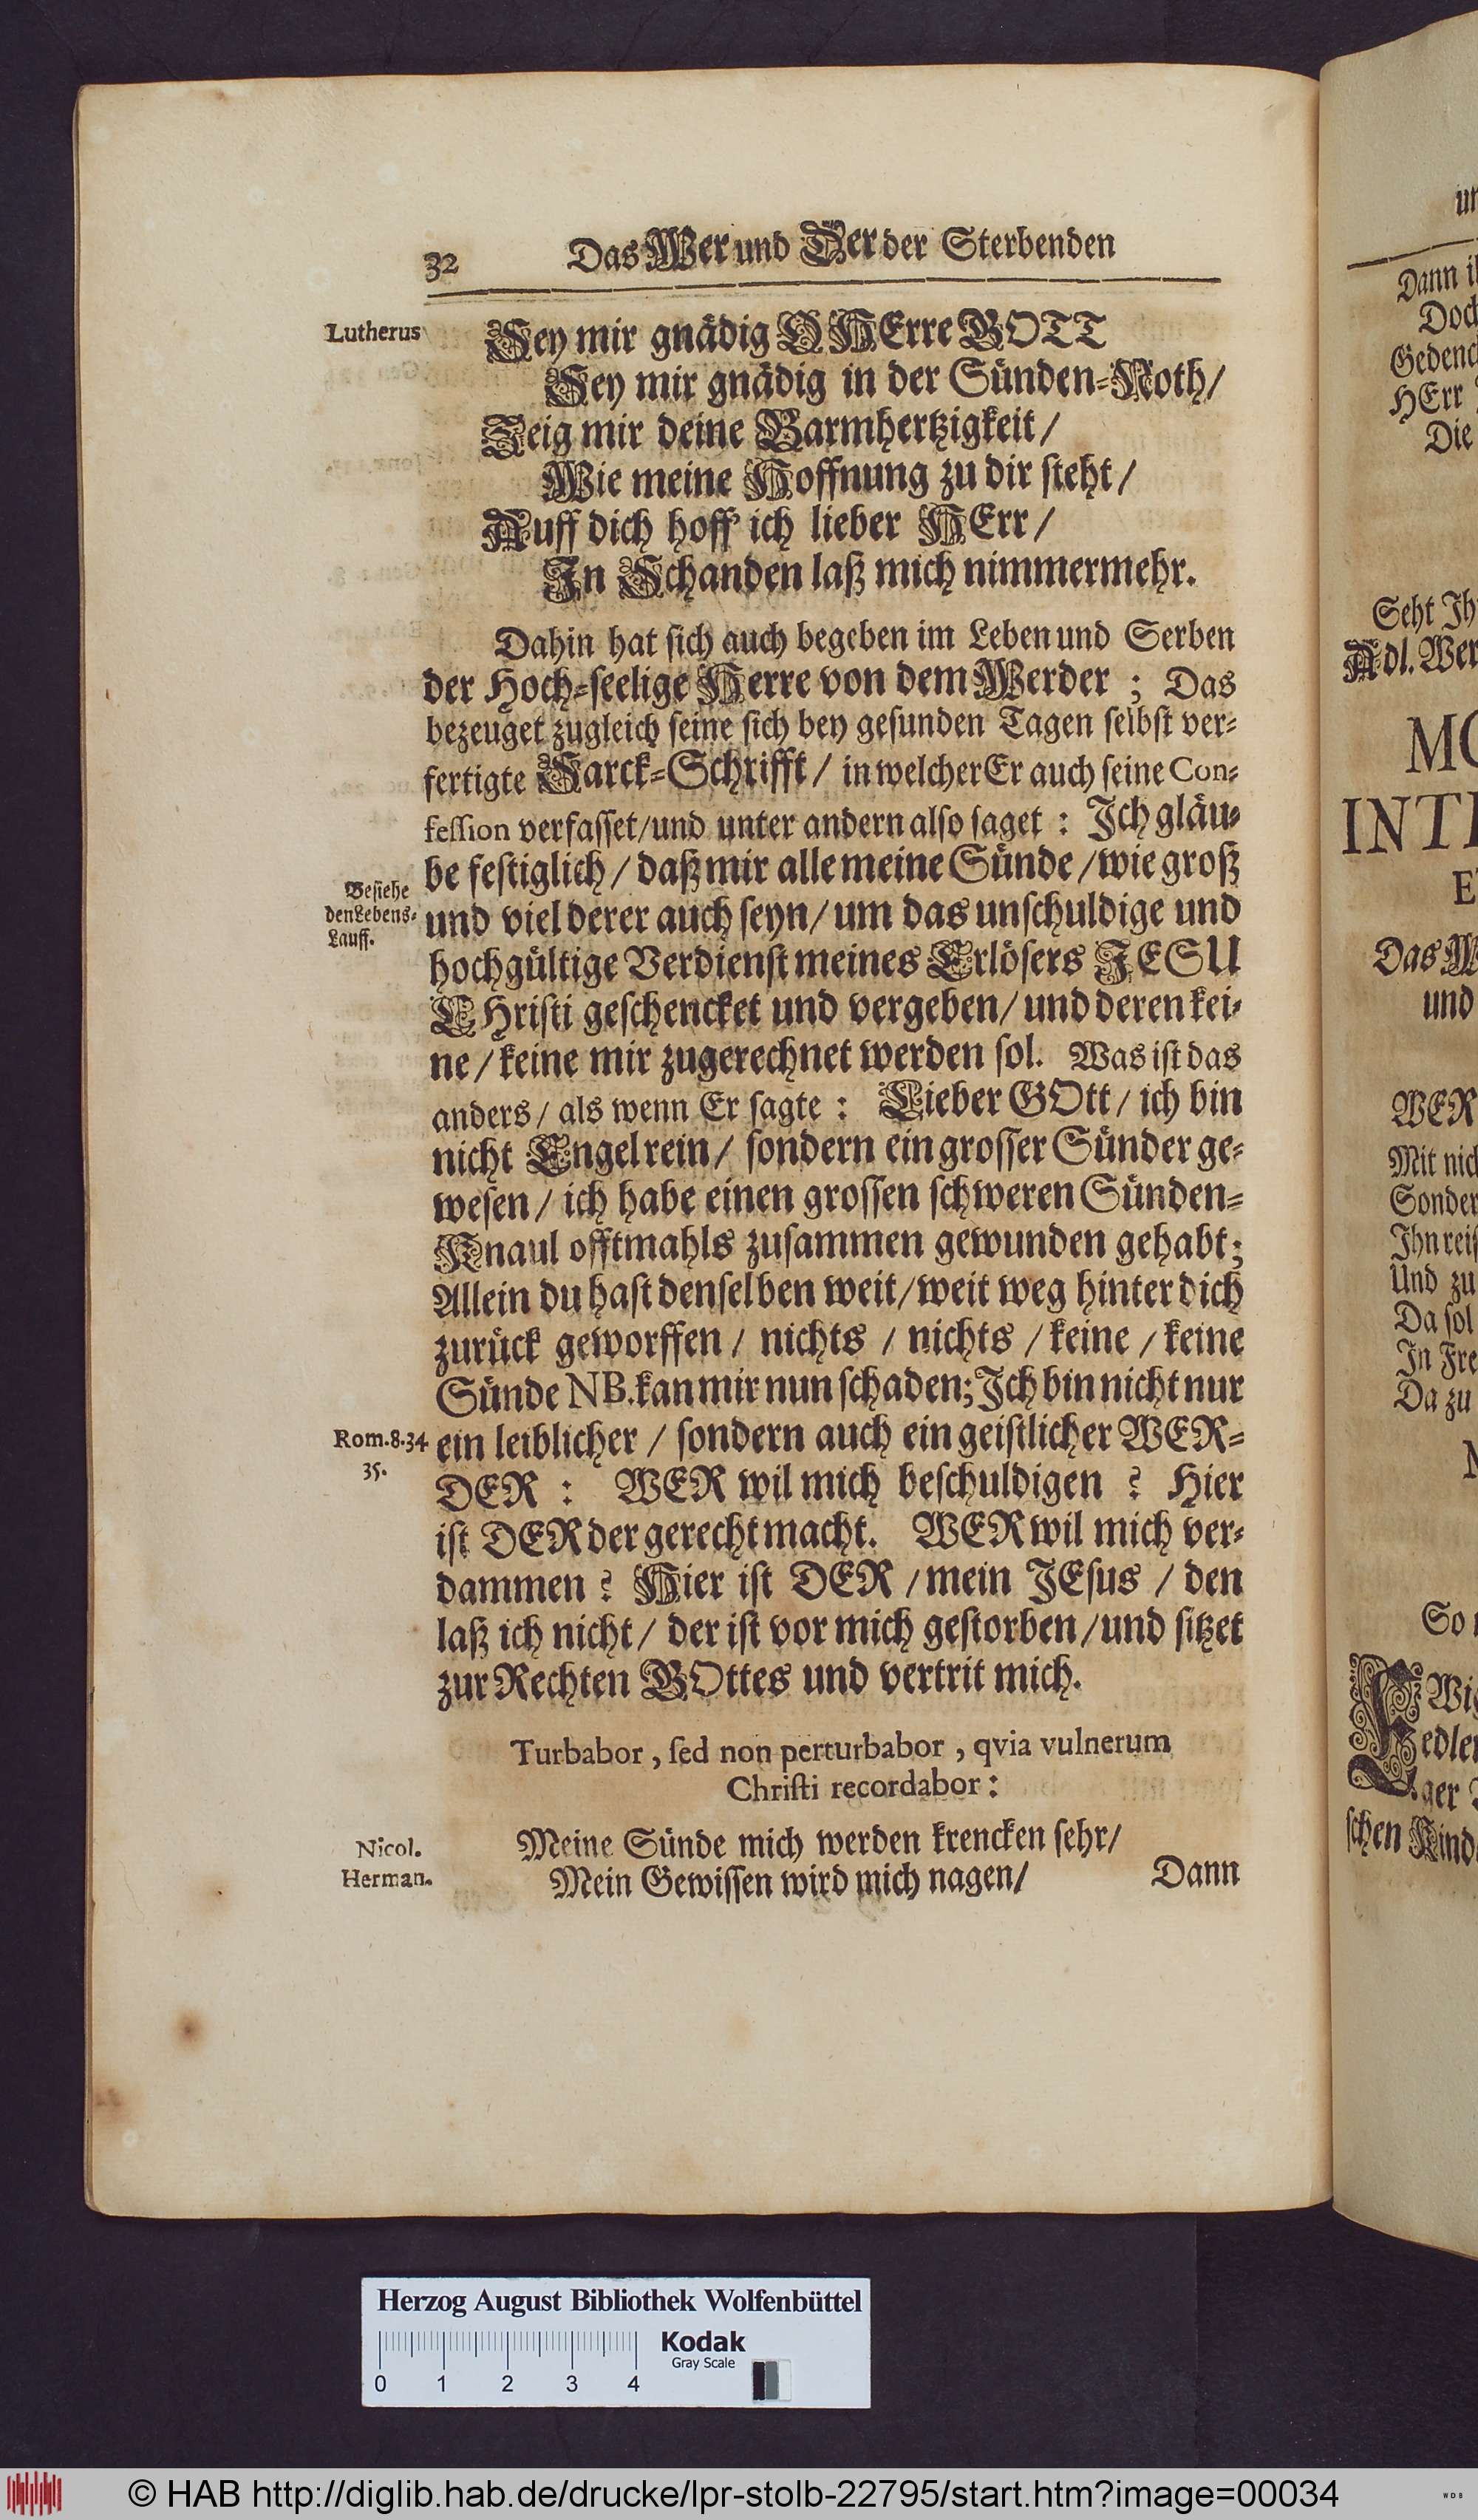 32 Das Wer und Der der Sterbenden
Lutherus
Sey mir gnädig O HErre GOTT
Sey mir gnädig in der Sünden-Noth/
Zeig mir deine Barmhertzigkeit/
Wie meine Hoffnung zu dir steht/
Auff dich hoff' ich lieber HErr/
In Schanden laß mich nimmermehr.
Dahin hat sich auch begeben im Leben und Serben
der Hoch-seelige Herre von dem Werder ; Das
bezeuget zugleich seine sich bey gesunden Tagen selbst ver-
fertigte Sarck-Schrifft/ in welcher Er auch seine Con-
fession verfasset/und unter andern also saget : Ich gläu-
be festiglich/ daß mir alle meine Sünde/wie groß
Besiehe
den Lebens-
Lauff.
und viel derer auch seyn/ um das unschuldige und
hochgültige Verdienst meines Erlösers JESU
CHristi geschencket und vergeben/ und deren kei-
ne/keine mir zugerechnet werden sol. Was ist das
anders/ als wenn Er sagte : Lieber GOtt/ ich bin
nicht Engelrein/ sondern ein grosser Sünder ge-
wesen/ ich habe einen grossen schweren Sünden-
Knaul offtmahls zusammen gewunden gehabt;
Allein du hast denselben weit/weit weg hinter dich
zurück geworffen/ nichts / nichts /keine/keine
Sünde NB. kan mir nun schaden; Ich bin nicht nur
Rom. 8. 34
35.
ein leiblicher/ sondern auch ein geistlicher WER-
DER : WER wil mich beschuldigen ? Hier
ist DER der gerecht macht. WER wil mich ver-
dammen ? Hier ist DER /mein JEsus / den
laß ich nicht/ der ist vor mich gestorben/und sitzet
zur Rechten GOttes und vertrit mich.
Turbabor, sed non perturbabor, qvia vulnerum
Christi recordabor:
Nicol.
Herman.
Meine Sünde mich werden krencken sehr/
Mein Gewissen wird mich nagen/
Dann
Dann
Doch
HErr
Die
Seht Ih
Adl. Wer
MO
INTE
Das W
und
WER
Mit nich
Sonder
Ihn reis
Und zu
Da sol
In Fre
Da zu
So
schen Kind
Herzog August Bibliothek Wolfenbüttel
Kodak
Gray Scale
0 1 2 3 4
© HAB http://diglib.hab.de/drucke/lpr-stolb-22795/start.htm?image=00034
WDB